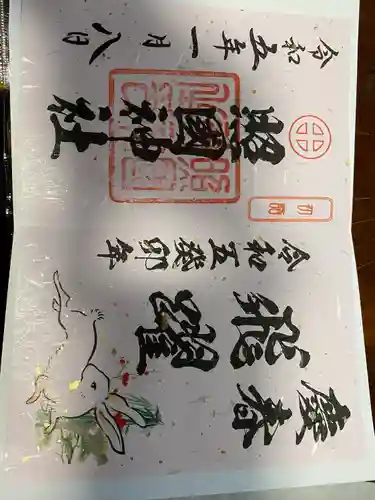 慶春
飛躍
令和五癸卯年
初詣
照國神社
令和五年一月八日